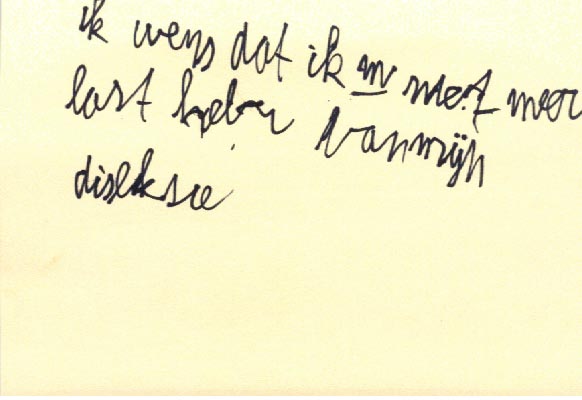 ik wens dat ik niet meer
last heber vanmijn
diseksie